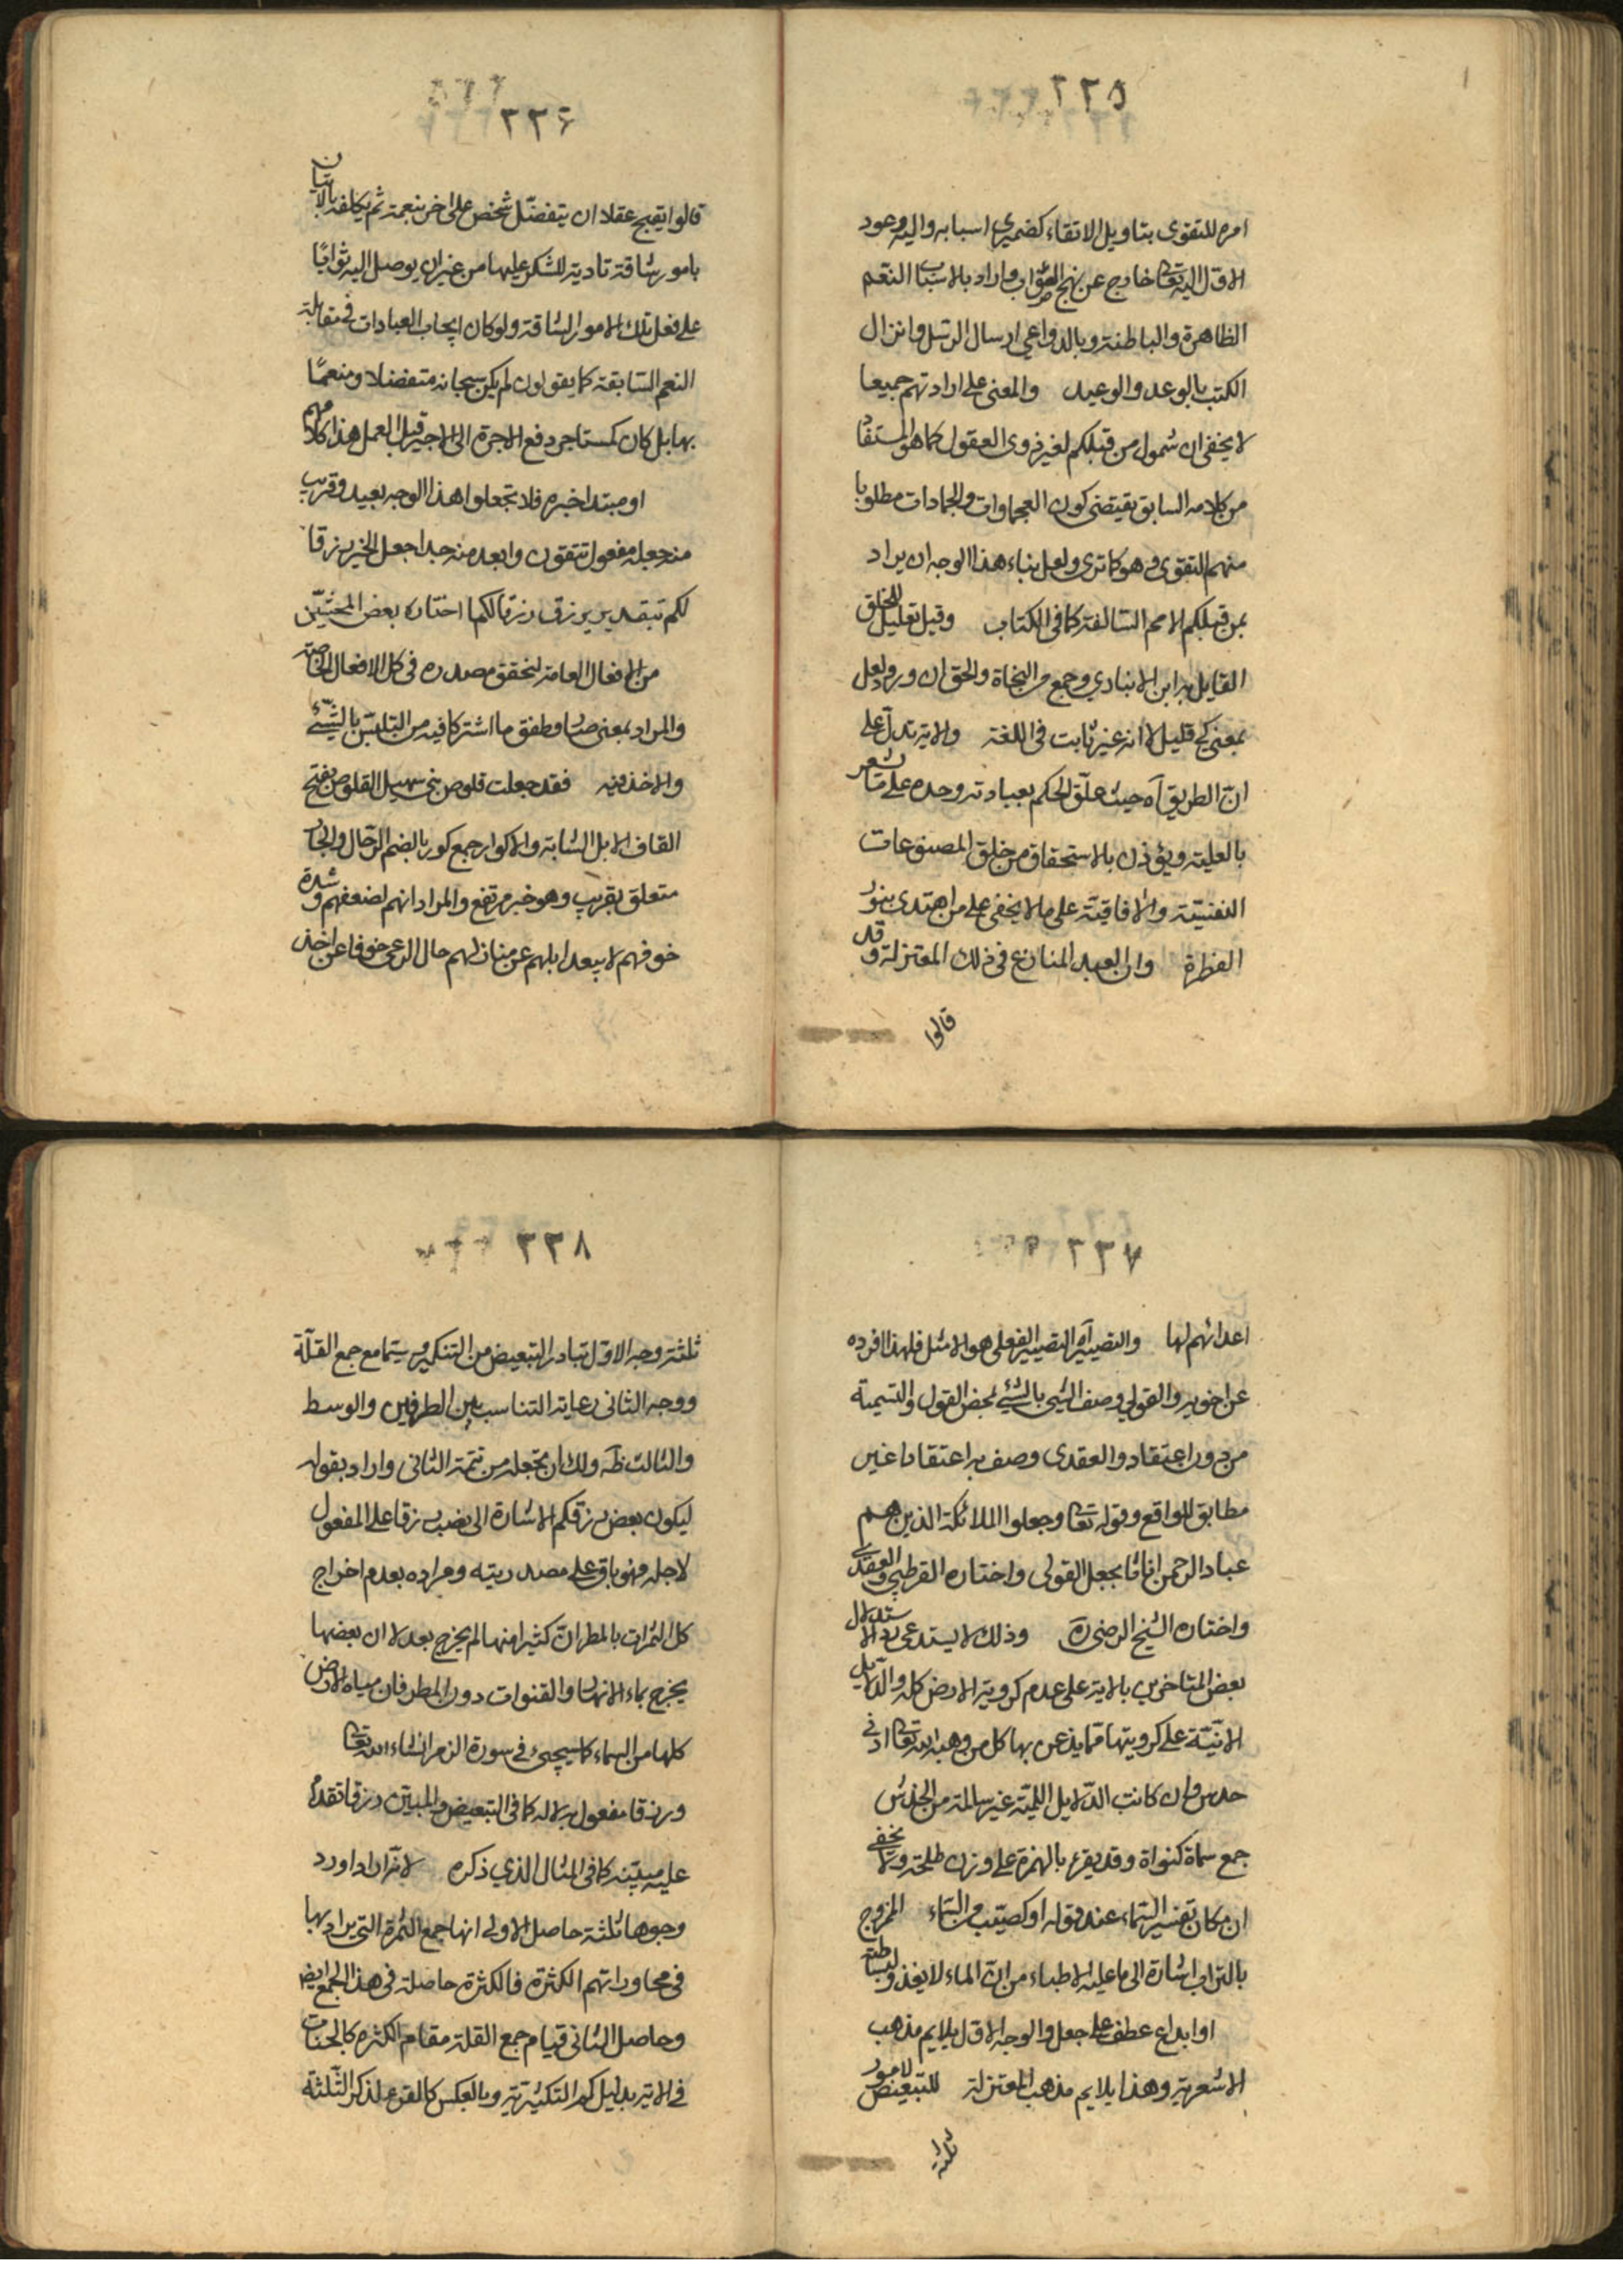 ٢٢٥
امره للتقوى بتاويل الاتقاء كضميري اسبابه واليه وعود
الاول اليه تعالى خارج عن نهج الصواب واراد بالاسباب النعم
الظاهرة والباطنة وبالدواعي ارسال الرسل وانزال
الكتب بالوعد والوعيد والمعنى على ارادتهم جميعا
لا يخفى ان شمول من قبلكم لغير ذوى العقول كما هو المستفاد
من كلامه السابق يقتضى كون العجماوات والجمادات مطلوبا
منهم التقوى وهو كما ترى ولعل بناء هذا الوجه ان يراد
بمن قبلكم الامم السالفة كما فى الكتاب وقيل تعليل للخلق
القايل به ابن الانباري وجمع من النحاة والحق ان ورود لعل
بمعنى كي قليل لا انه غير ثابت فى اللغة والاية تدل على
ان الطريق آه حيث علق الحكم بعبادته وحده على ما يشعر
بالعلية ويؤذن بالاستحقاق من خلق المصنوعات
النفسية والافاقية على ما لا يخفى على من اهتدى بنور
الفطرة وان العبد المنازع فى ذلك المعتزلة وقد
قالوا
٢٢۶
قالوا يقبح عقلا ان يتفضل شخص على اخر بنعمة ثم يكلفه بالاتيان
بامور شاقة تادية للشكر عليها من غير ان يوصل اليه ثوابًا
على فعل تلك الامور الشاقة ولو كان ايجاب العبادات فى مقابلة
النعم السابقة كما يقولون لم يكن سبحانه متفضلا ومنعمًا
بها بل كان كمستاجر دفع الاجرة الى الاجير قبل العمل هذا كلامهم
او مبتدا خبره فلا تجعلوا هذا الوجه بعيد وقريب
منه جعله مفعول تتقون وابعد منه جدا جعل الخبر رزقا
لكم بتقدير يرزق رزقا لكم كما اختاره بعض المحشيّن
من الافعال العامة لتحقق مصدره فى كل الافعال الخاصة
والمراد بمعنى صار وطفق ما اشتركا فيه من التلبّس بالشئ
والاخذ فيه فقد جعلت قلوص بنى سهيل القلوص بفتح
القاف الابل الشابة والاكوار جمع كور بالضم الرحال والجار
متعلق بقريب وهو خبر مرتفع والمراد انهم لضعفهم وشدة
خوفهم لا يبعد ابلهم عن منازلهم حال الرعى خوفا عن اخذ
٢٢٧
اعدائهم لها والتصيير آه التصيير الفعلى هو الامثل فلهذا افرده
عن اخويه والقولي وصف الشئ بالشئ بمحض القول والتسمية
من دون اعتقاد والعقدى وصف به اعتقادا غير
مطابق للواقع وقوله تعالى وجعلوا الملائكة الذين هم
عباد الرحمن اناثا بجعل القولى واختاره القرطبي والعقدى
واختاره الشيخ الرضى ره وذلك لا يستدعى رد الاستدلال
بعض المتاخرين بالاية على عدم كروية الارض كله والدلايل
الانّيّة على كرويتها مما يذعن بها كل من وهبه الله تعالى ادنى
حدس وان كانت الدلايل اللمية غير سالمة من الخدش
جمع سماة كنواة وقد يقرء بالهمزة على وزن طلحة ولا يخفى
ان مكان تفسير السماء عند قوله او كصيّب من السماء الممزوج
بالتراب اشارة الى ما عليه الاطباء من ان الماء لا يغذو لبساطته
او ابداع عطف على جعل والوجه الاول يلايم مذهب
الاشعرية وهذا يلايم مذهب المعتزلة للتبعيض لامور
ثلثة
٢٢٨
ثلثة وجه الاول تبادر التبعيض من التنكير سيما مع جمع القلّة
ووجه الثانى رعاية التناسب بين الطرفين والوسط
والثالث ظه ولك ان تجعله من تتمة الثانى واراد بقوله
ليكون بعض رزقكم الاشارة الى نصب رزقا على المفعول
لاجله فهو باق على مصدريته ومراده بعدم اخراج
كل الثمرات بالمطر ان كثيرا منها لم يخرج بعد لا ان بعضها
يخرج بماء الانهار والقنوات دون المطر فان مياه الارض
كلها من السماء كما سيجئ فى سورة الزمر انشاء الله تعالى
ورزقا مفعول به لا له كما فى التبعيض والمبين رزقا تقدم
عليه مبيّنه كما فى المثال الذي ذكره لانه اراد اورد
وجوها ثلثة حاصل الاولى انها جمع الثمرة التي يراد بها
فى محاوراتهم الكثرة فالكثرة حاصلة فى هذا الجمع ايضا
وحاصل الثانى قيام جمع القلة مقام الكثرة كالجنات
فى الاية بدليل كم التكثيرية وبالعكس كالقرء لذكر الثلثة